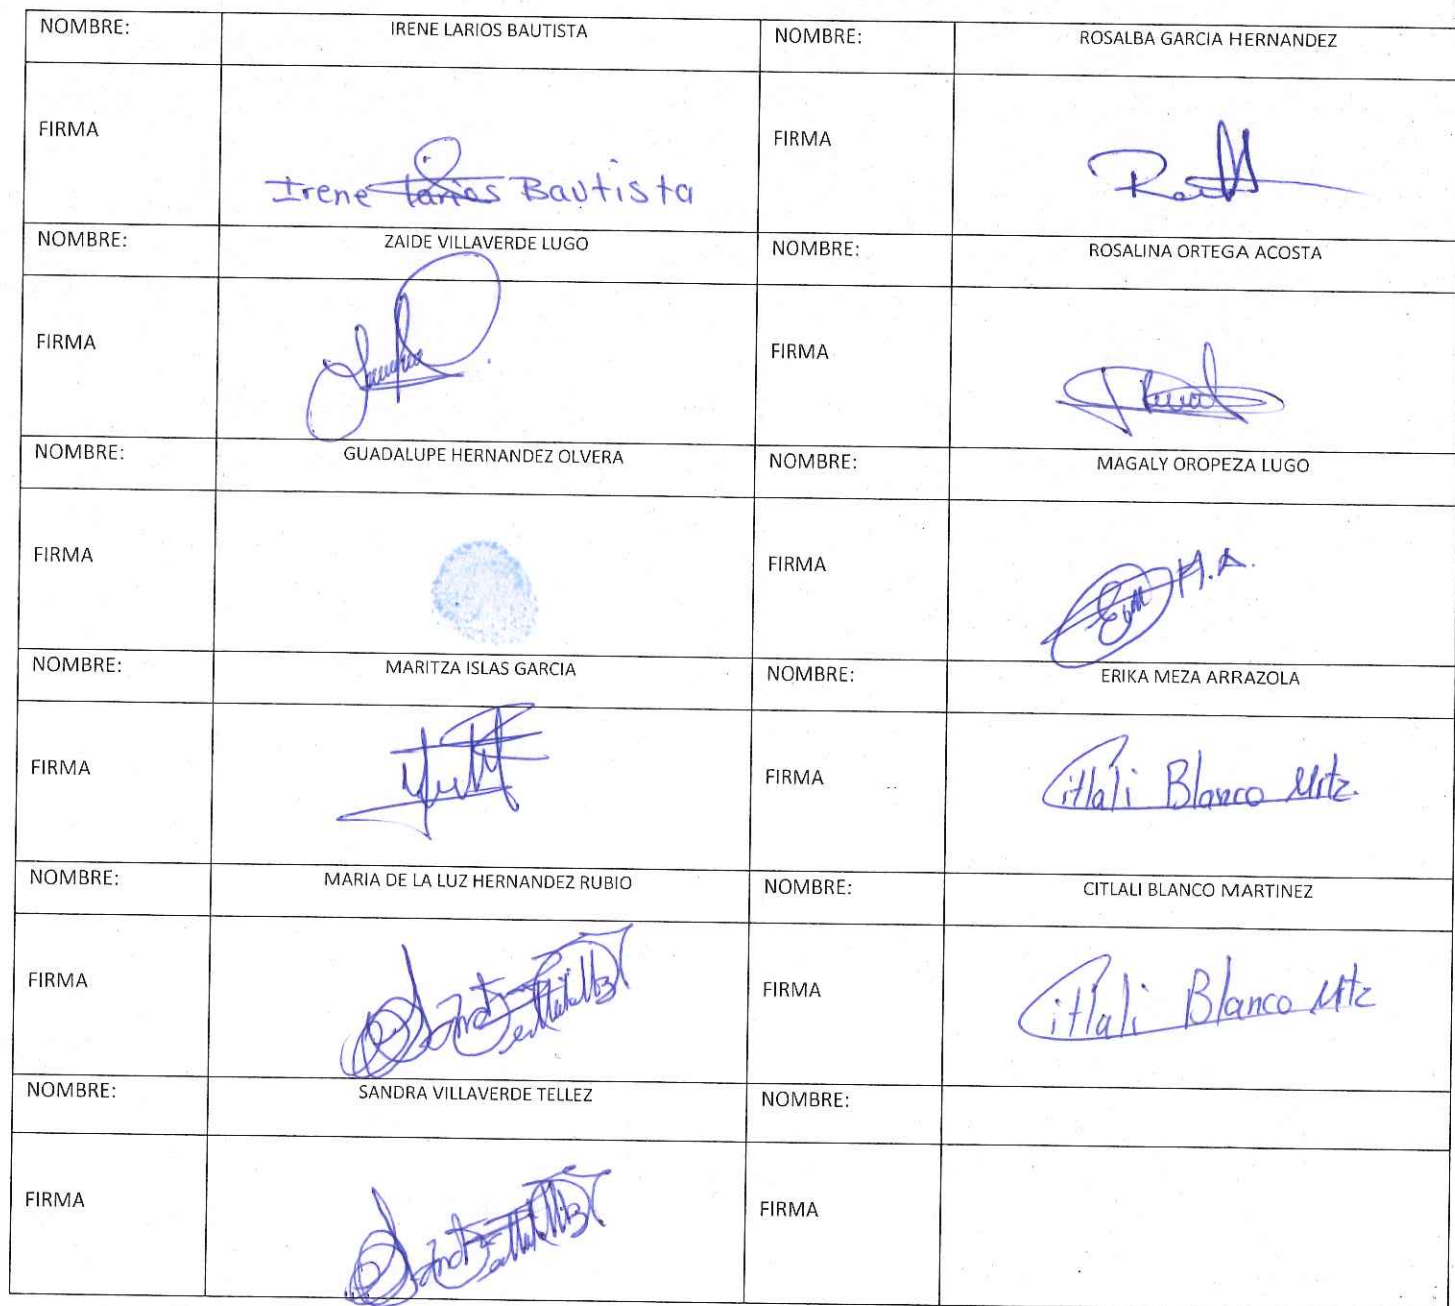 NOMBRE: IRENE LARIOS BAUTISTA NOMBRE: ROSALBA GARCIA HERNANDEZ
FIRMA Irene Larios Bautista FIRMA
NOMBRE: ZAIDE VILLAVERDE LUGO NOMBRE: ROSALINA ORTEGA ACOSTA
FIRMA FIRMA
NOMBRE: GUADALUPE HERNANDEZ OLVERA NOMBRE: MAGALY OROPEZA LUGO
FIRMA FIRMA M.A.
NOMBRE: MARITZA ISLAS GARCIA NOMBRE: ERIKA MEZA ARRAZOLA
FIRMA FIRMA Citlali Blanco Mrtz.
NOMBRE: MARIA DE LA LUZ HERNANDEZ RUBIO NOMBRE: CITLALI BLANCO MARTINEZ
FIRMA FIRMA Citlali Blanco Mrtz
NOMBRE: SANDRA VILLAVERDE TELLEZ NOMBRE:
FIRMA FIRMA